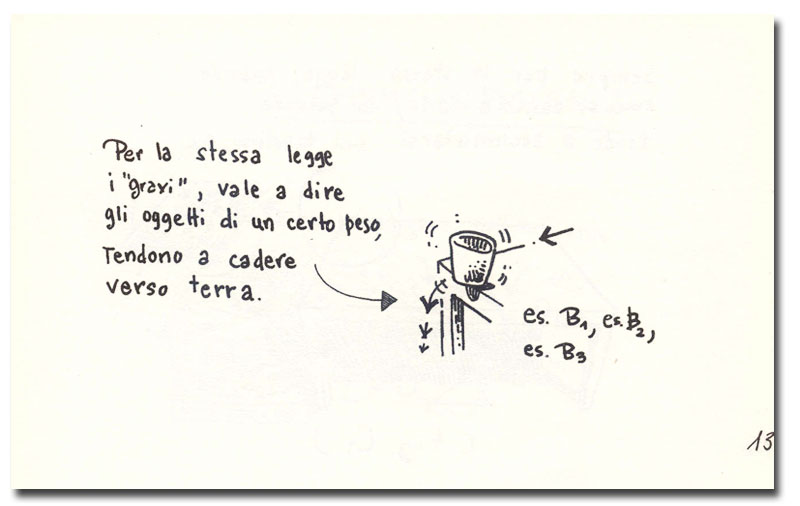 Per la stessa legge
i "gravi", vale a dire
gli oggetti di un certo peso,
Tendono a cadere
verso terra.
es. B1, es. B2,
es. B3
13